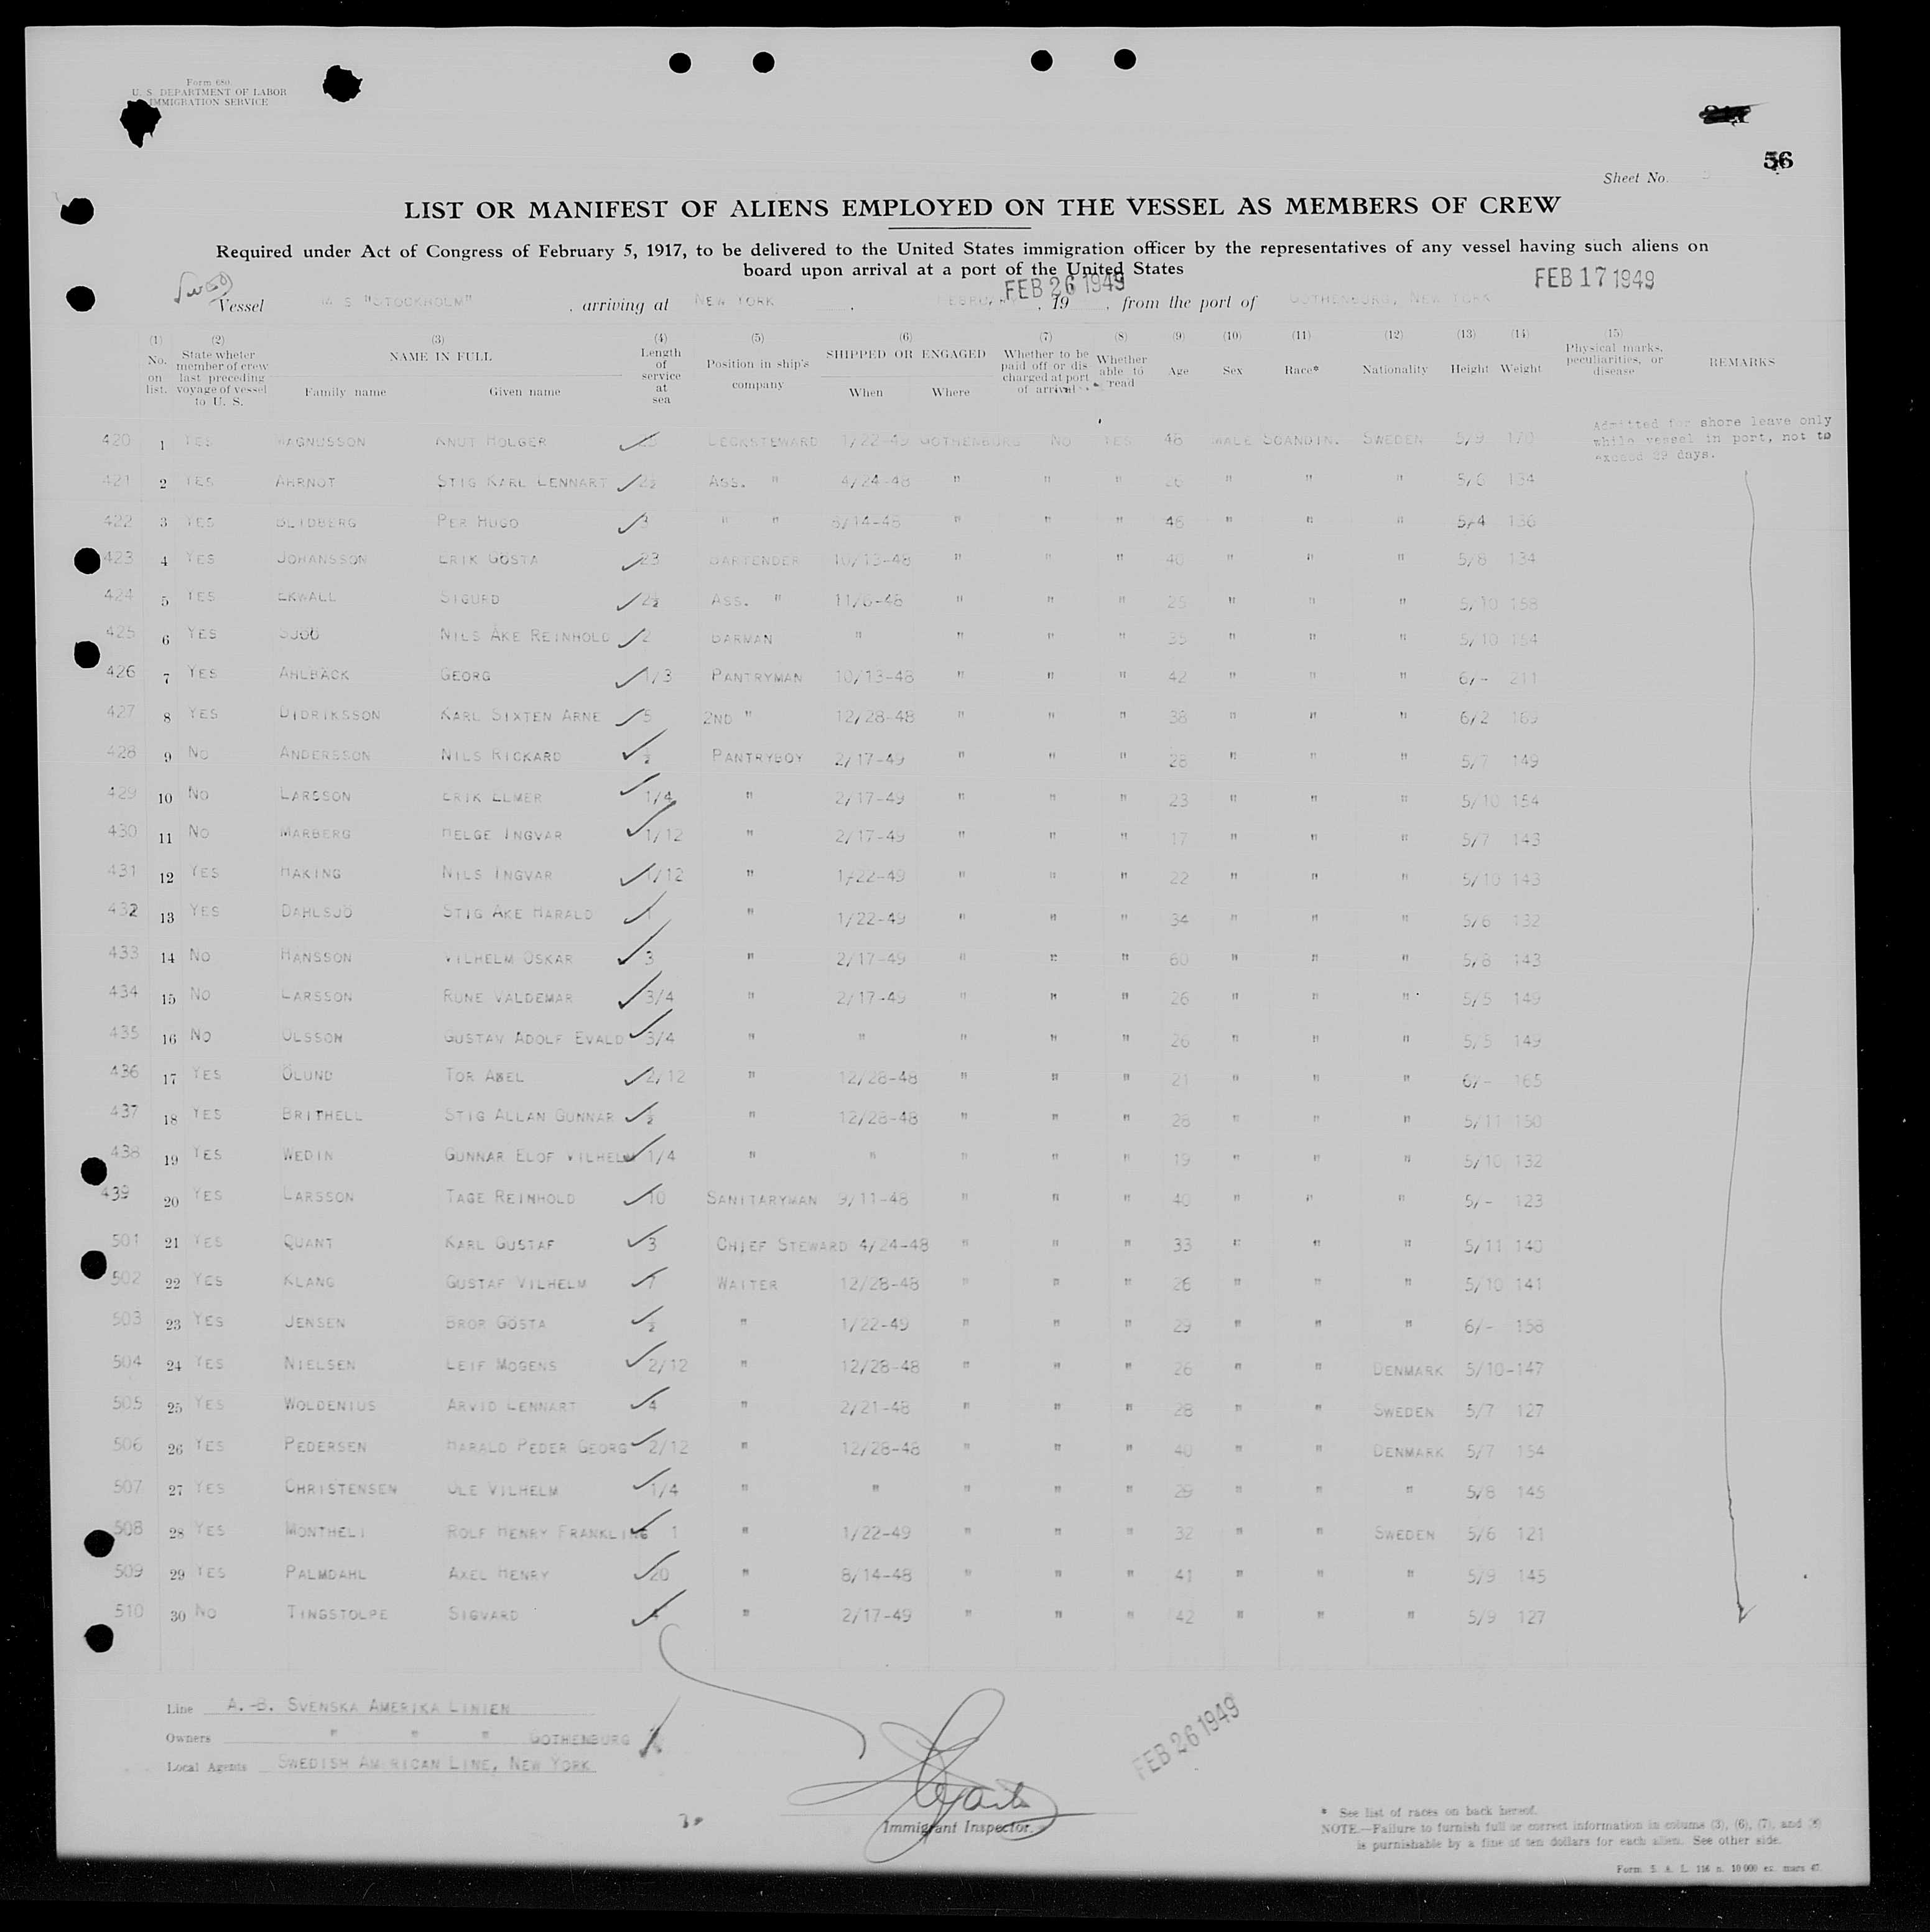 Form 680
U. S. DEPARTMENT OF LABOR
IMMIGRATION SERVICE
56
Sheet No.
LIST OR MANIFEST OF ALIENS EMPLOYED ON THE VESSEL AS MEMBERS OF CREW
Required under Act of Congress of February 5, 1917, to be delivered to the United States immigration officer by the representatives of any vessel having such aliens on
board upon arrival at a port of the United States
Vessel M S "STOCKHOLM" , arriving at NEW YORK , FEBRUARY FEB 26 1949 , 19 , from the port of GOTHENBURG, NEW YORK FEB 17 1949
(1) No. on list. (2) State wheter member of crew last preceding voyage of vessel to U. S. (3) NAME IN FULL Family name Given name (4) Length of service at sea (5) Position in ship's company (6) SHIPPED OR ENGAGED When Where (7) Whether to be paid off or discharged at port of arrival (8) Whether able to read (9) Age (10) Sex (11) Race* (12) Nationality (13) Height (14) Weight (15) Physical marks, peculiarities, or disease REMARKS
Admitted for shore leave only
while vessel in port, not to
exceed 29 days.
420 1 YES MAGNUSSON KNUT HOLGER DECKSTEWARD 1/22-49 GOTHENBURG NO YES 48 MALE SCANDIN. SWEDEN 5/9 170
421 2 YES AHRNOT STIG KARL LENNART 2½ ASS. " 4/24-48 " " " 26 " " " 5/6 134
422 3 YES BLIDBERG PER HUGO 3 " " 8/14-48 " " " 46 " " " 5/4 136
423 4 YES JOHANSSON ERIK GÖSTA 23 BARTENDER 10/13-48 " " " 40 " " " 5/8 134
424 5 YES EKWALL SIGURD 2½ ASS. " 11/6-48 " " " 25 " " " 5/10 158
425 6 YES SJÖÖ NILS ÅKE REINHOLD 2 BARMAN " " " " 35 " " " 5/10 154
426 7 YES AHLBÄCK GEORG 1/3 PANTRYMAN 10/13-48 " " " 42 " " " 6/- 211
427 8 YES DIDRIKSSON KARL SIXTEN ARNE 5 2ND " 12/28-48 " " " 38 " " " 6/2 169
428 9 NO ANDERSSON NILS RICKARD ½ PANTRYBOY 2/17-49 " " " 28 " " " 5/7 149
429 10 NO LARSSON ERIK ELMER 1/4 " 2/17-49 " " " 23 " " " 5/10 154
430 11 NO MARBERG HELGE INGVAR 1/12 " 2/17-49 " " " 17 " " " 5/7 143
431 12 YES HAKING NILS INGVAR 1/12 " 1/22-49 " " " 22 " " " 5/10 143
432 13 YES DAHLSJÖ STIG ÅKE HARALD 1 " 1/22-49 " " " 34 " " " 5/6 132
433 14 NO HANSSON VILHELM OSKAR 3 " 2/17-49 " " " 60 " " " 5/8 143
434 15 NO LARSSON RUNE VALDEMAR 3/4 " 2/17-49 " " " 26 " " " 5/5 149
435 16 NO OLSSON GUSTAV ADOLF EVALD 3/4 " " " " " 26 " " " 5/5 149
436 17 YES ÖLUND TOR AXEL 2/12 " 12/28-48 " " " 21 " " " 6/- 165
437 18 YES BRITHELL STIG ALLAN GUNNAR ½ " 12/28-48 " " " 28 " " " 5/11 150
438 19 YES WEDIN GUNNAR ELOF VILHELM 1/4 " " " " " 19 " " " 5/10 132
439 20 YES LARSSON TAGE REINHOLD 10 SANITARYMAN 9/11-48 " " " 40 " " " 5/- 123
501 21 YES QUANT KARL GUSTAF 3 CHIEF STEWARD 4/24-48 " " " 33 " " " 5/11 140
502 22 YES KLANG GUSTAF VILHELM 7 WAITER 12/28-48 " " " 26 " " " 5/10 141
503 23 YES JENSEN BROR GÖSTA ½ " 1/22-49 " " " 29 " " " 6/- 158
504 24 YES NIELSEN LEIF MOGENS 2/12 " 12/28-48 " " " 26 " " DENMARK 5/10-147
505 25 YES WOLDENIUS ARVID LENNART 4 " 2/21-48 " " " 28 " " SWEDEN 5/7 127
506 26 YES PEDERSEN HARALD PEDER GEORG 2/12 " 12/28-48 " " " 40 " " DENMARK 5/7 154
507 27 YES CHRISTENSEN OLE VILHELM 1/4 " " " " " 29 " " " 5/8 145
508 28 YES MONTHELI ROLF HENRY FRANKLING 1 " 1/22-49 " " " 32 " " SWEDEN 5/6 121
509 29 YES PALMDAHL AXEL HENRY 20 " 8/14-48 " " " 41 " " " 5/9 145
510 30 NO TINGSTOLPE SIGVARD 4 " 2/17-49 " " " 42 " " " 5/9 127
Line A.-B. SVENSKA AMERIKA LINIEN
Owners " " " GOTHENBURG
Local Agents SWEDISH AMERICAN LINE, NEW YORK
FEB 26 1949
Immigrant Inspector.
* See list of races on back hereof.
NOTE.—Failure to furnish full or correct information in colums (3), (6), (7), and (8)
is purnishable by a fine of ten dollars for each alien. See other side.
Form. S. A. L. 116 n. 10 000 ex. mars 47.